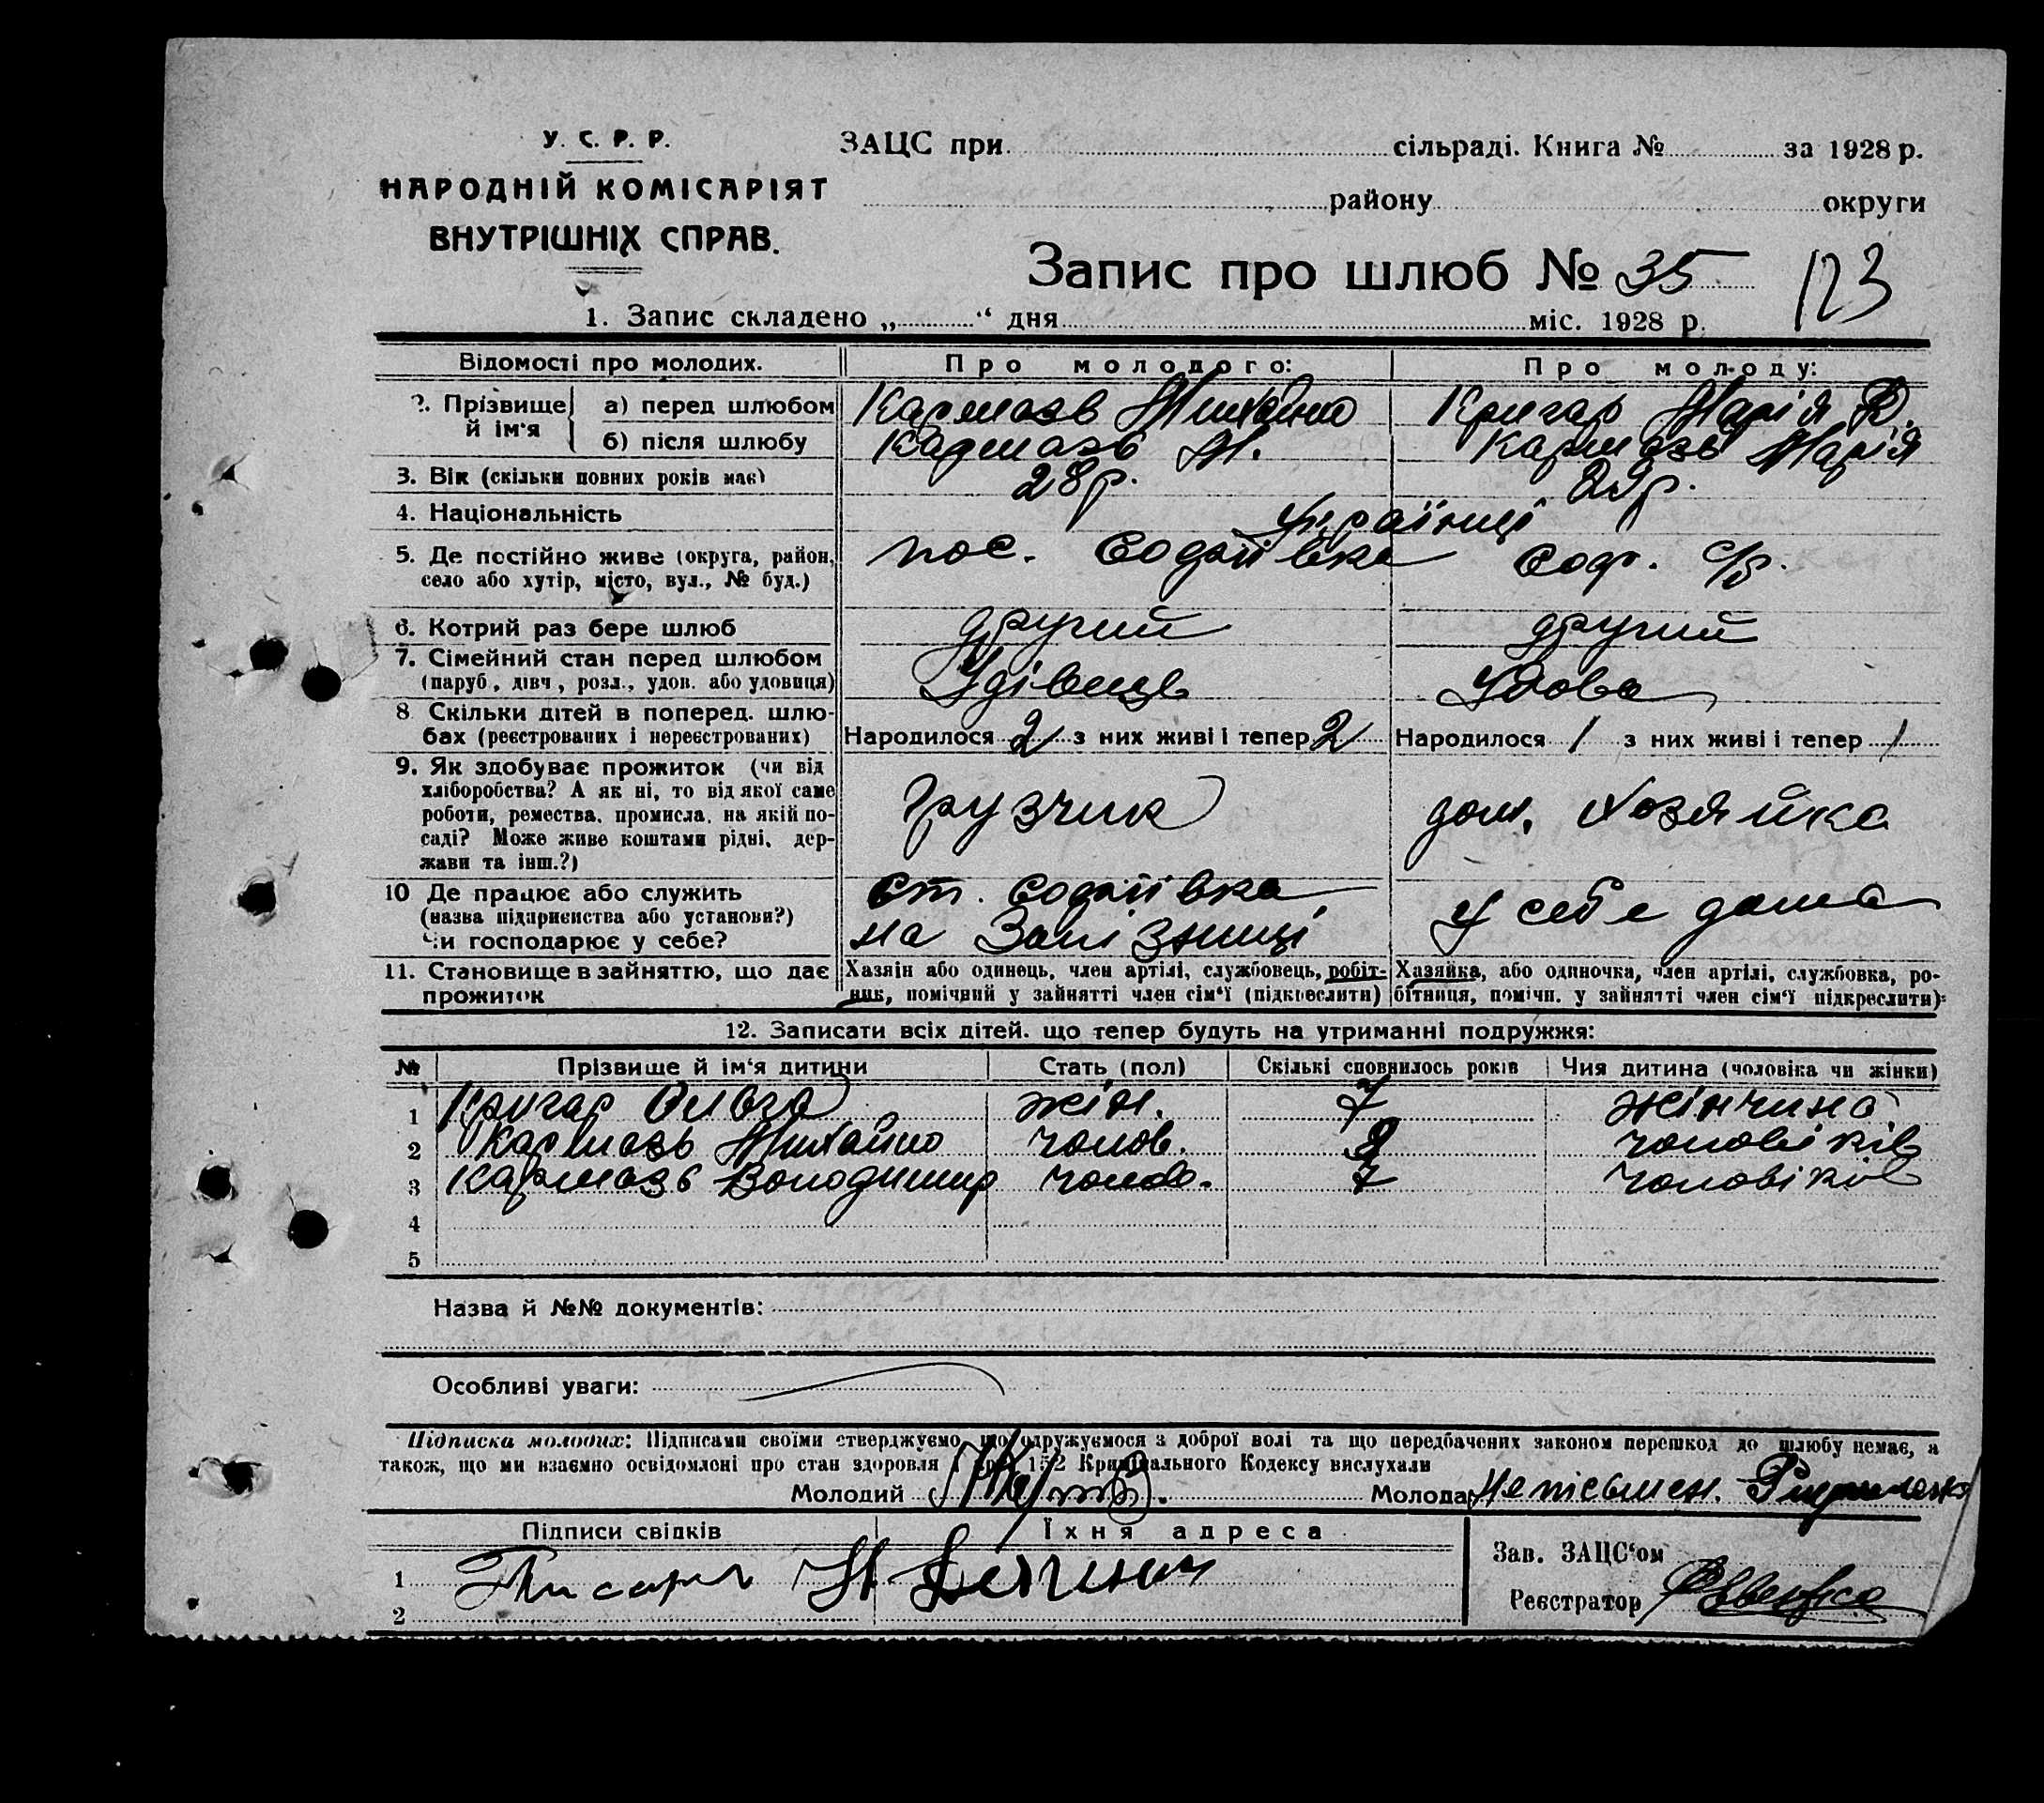 У. С. Р. Р.
НАРОДНІЙ КОМІСАРІЯТ
ВНУТРІШНІХ СПРАВ.
ЗАЦС при сільраді. Книга № за 1928 р.
району округи
Запис про шлюб № 35 123
1. Запис складено „ “ дня міс. 1928 р.
Відомості про молодих. Про молодого: Про молоду:
2. Прізвище й ім‘я а) перед шлюбом Кармазь Михайло Кригар Марія
б) після шлюбу Кармазь М. Кармазь Марія
3. Вік (скільки повних років має) 28 р. 29 р.
4. Національність Українці
5. Де постійно живе (округа, район, пос. Софіївка Соф. с/р.
село або хутір, місто, вул., № буд.)
6. Котрий раз бере шлюб другий другий
7. Сімейний стан перед шлюбом Удівець Удова
(паруб, дівч, розл., удов. або удовиця)
8 Скільки дітей в поперед. шлю-
бах (реєстрованих і нереєстрованих) Народилося 2 з них живі і тепер 2 Народилося 1 з них живі і тепер 1
9. Як здобуває прожиток (чи від
хліборобства? А як ні, то від якої саме
роботи, ремества, промисла, на якій по-
саді? Може живе коштами рідні, дер-
жави та інш.?)
грузчик дом. хозяйка
10 Де працює або служить ст. Софіївка у себе дома
(назва підприємства або установи?) на Залізниці
Чи господарює у себе?
11. Становище в зайняттю, що дає прожиток
Хазяїн або одинець, член артілі, службовець, робіт-
ник, помічний у зайнятті член сім‘ї (підкреслити)
Хазяйка, або одиночка, член артілі, службовка, ро-
бітниця, помічн. у зайнятті член сім‘ї підкреслити)
12. Записати всіх дітей. що тепер будуть на утриманні подружжя:
№ Прізвище й ім‘я дитини Стать (пол) Скількі сповнилось років Чия дитина (чоловіка чи жінки)
1 Кригар Ольга жін. 7 жінчина
2 Кармазь Михайло чолов. чоловіків
3 Кармазь Володимир чолов. 7 чоловіків
4
5
Назва й №№ документів:
Особливі уваги:
Підписка молодих: Підписами своїми стверджуємо, що одружуємося з доброї волі та що передбачених законом перешкод до шлюбу немає, а
також, що ми взаємно освідомлені про стан здоровля 152 Кримінального Кодексу вислухали
Молодий Молода Неписьмен.
Підписи свідків Їхня адреса
1
2
Зав. ЗАЦС‘ом
Реєстратор